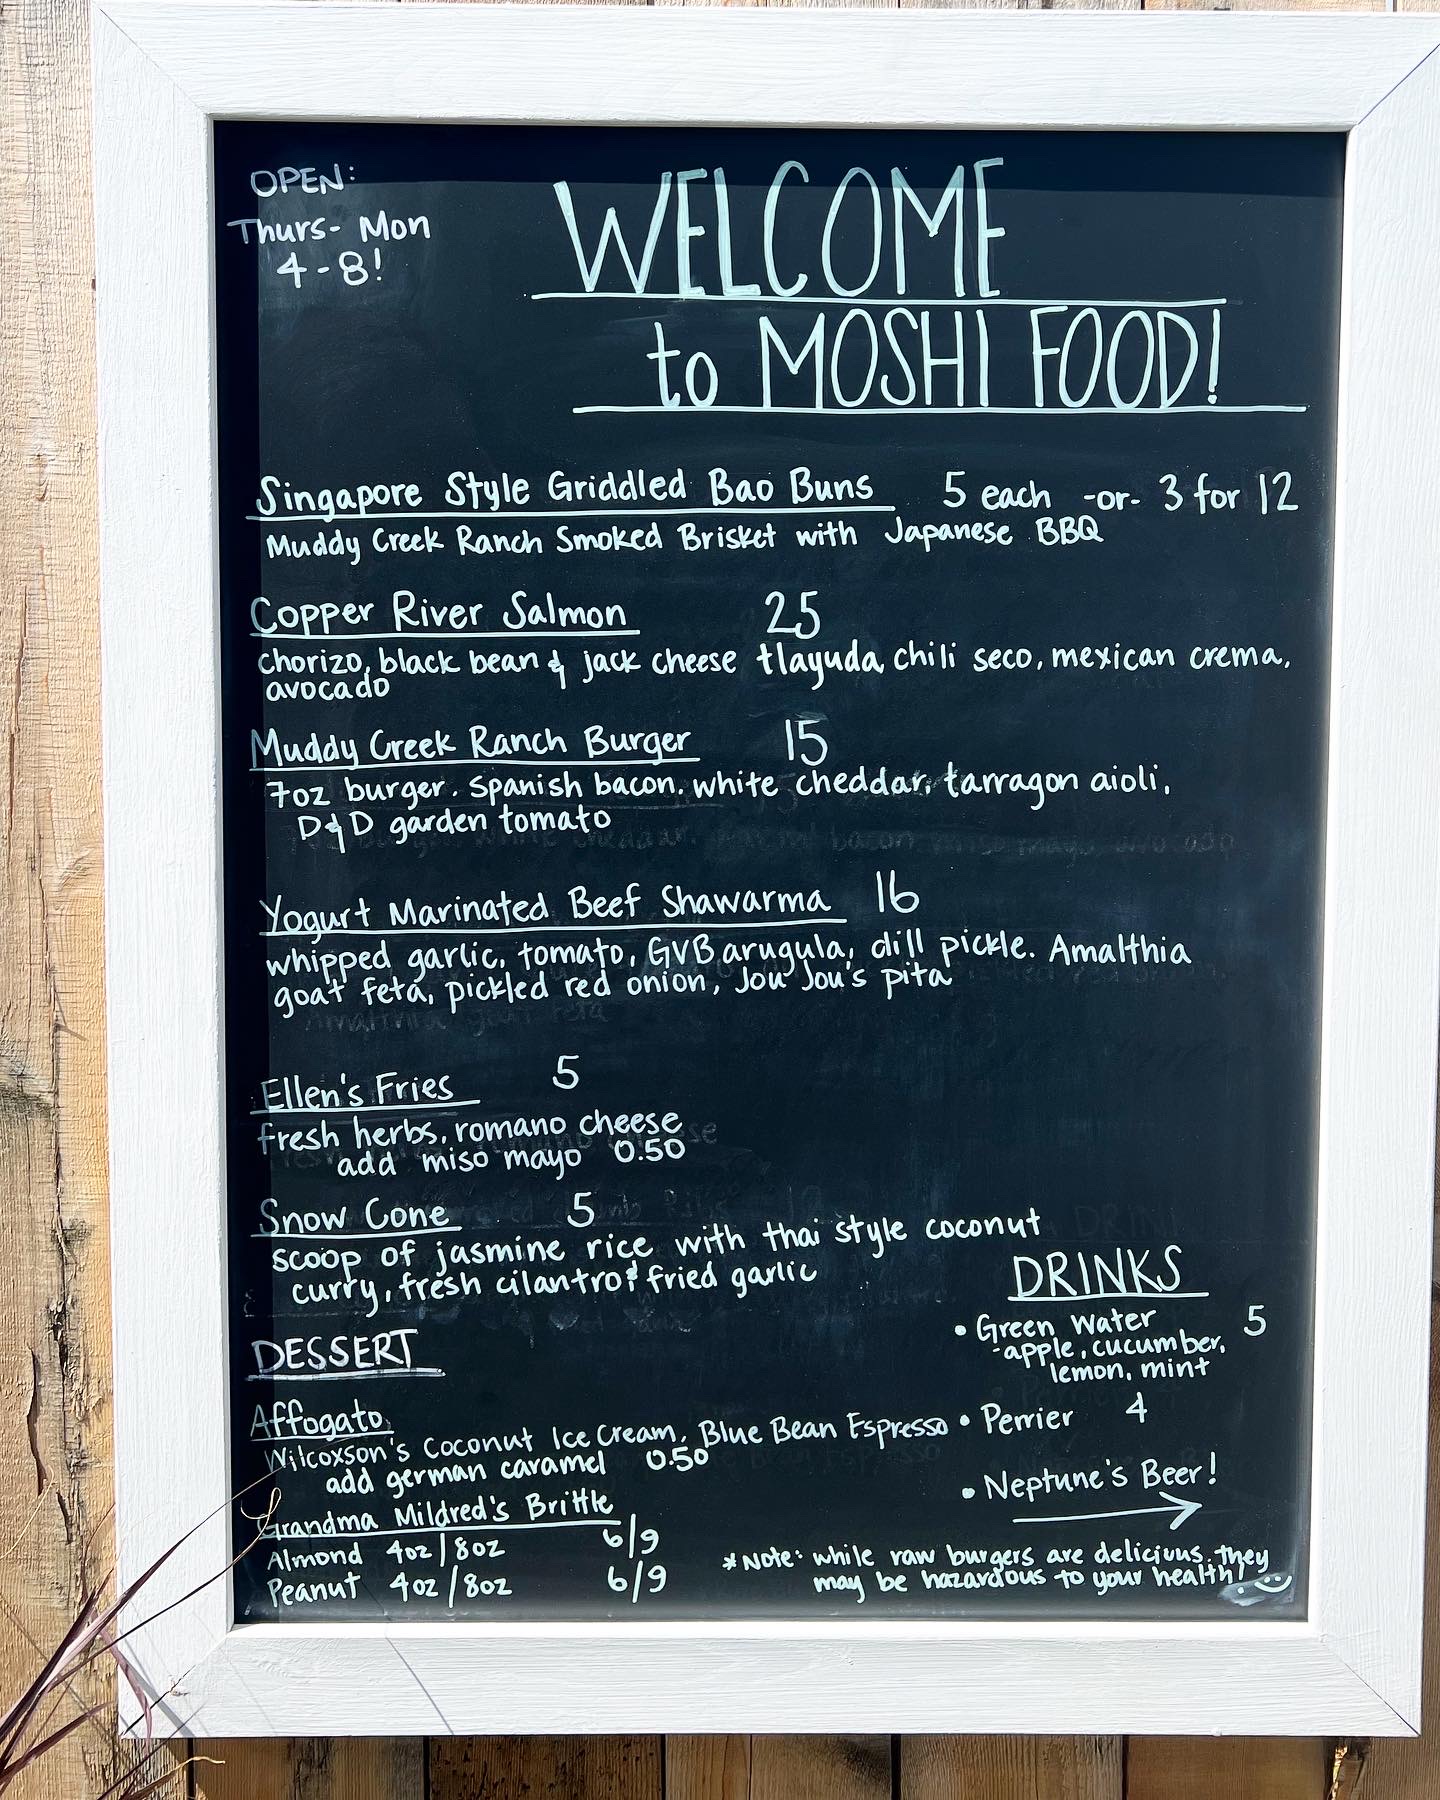 OPEN:
Thurs- Mon
4-8!
WELCOME
to MOSHI FOOD!
Singapore Style Griddled Bao Buns 5 each -or- 3 for 12
Muddy Creek Ranch Smoked Brisket with Japanese BBQ
Copper River Salmon 25
chorizo, black bean & jack cheese tlayuda, chili seco, mexican crema,
avocado
Muddy Creek Ranch Burger 15
7oz burger. spanish bacon. white cheddar, tarragon aioli,
D&D garden tomato
Yogurt Marinated Beef Shawarma 16
whipped garlic, tomato, GVB arugula, dill pickle. Amalthia
goat feta, pickled red onion, Jou Jou's pita
Ellen's Fries 5
fresh herbs, romano cheese
add miso mayo 0.50
Snow Cone 5
scoop of jasmine rice with thai style coconut
curry, fresh cilantro & fried garlic
DESSERT
Affogato
Wilcoxson's Coconut Ice Cream, Blue Bean Espresso
add german caramel 0.50
Grandma Mildred's Brittle
Almond 4oz/8oz 6/9
Peanut 4oz/8oz 6/9
DRINKS
• Green Water 5
-apple, cucumber,
lemon, mint
• Perrier 4
• Neptune's Beer!
*Note: while raw burgers are delicious, they
may be hazardous to your health!